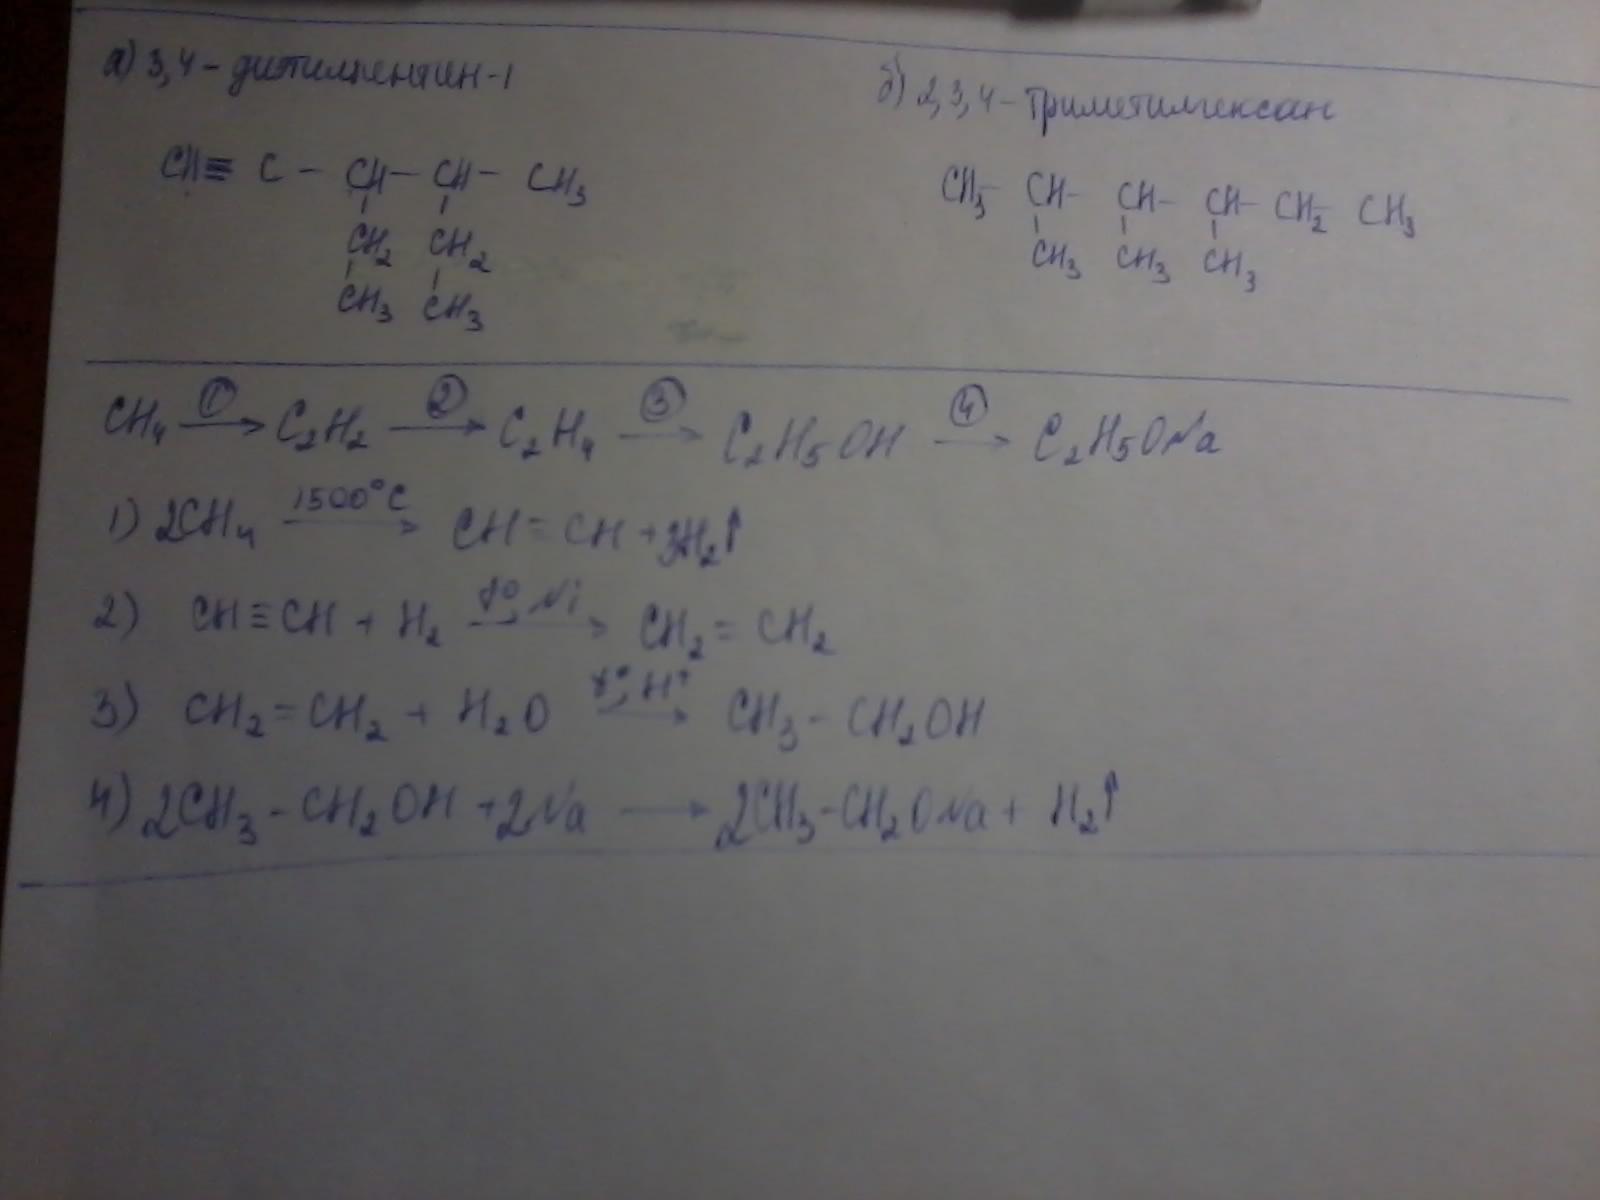 а) 3,4-диэтилпентин-1
б) 2,3,4-триметилгексан
CH≡ C - CH - CH - CH₃
CH₂ CH₂
CH₃ CH₃
CH₃- CH- CH- CH- CH₂- CH₃
CH₃ CH₃ CH₃
CH₄ →① C₂H₂ →② C₂H₄ →③ C₂H₅OH →④ C₂H₅ONa
1) 2CH₄ 1500°C → CH=CH + 3H₂↑
2) CH≡CH + H₂ t°, Ni → CH₂=CH₂
3) CH₂=CH₂ + H₂O t°, H⁺ → CH₃-CH₂OH
4) 2CH₃-CH₂OH + 2Na → 2CH₃-CH₂ONa + H₂↑